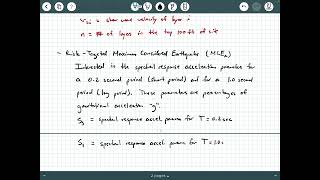 Vsi = shear wave velocity of layer i
n = # of layers in the top 100 ft of site
- Risk-Targeted Maximum Considered Earthquake (MCER)
Interested in the spectral response acceleration parameter for
a 0.2 second period (short period) and for a 1.0 second
period (long period). These parameters are percentages of
gravitational acceleration "g".
Ss = spectral response accel param for T = 0.2 sec
S1 = spectral response accel param for T = 1.0 s
2 pages